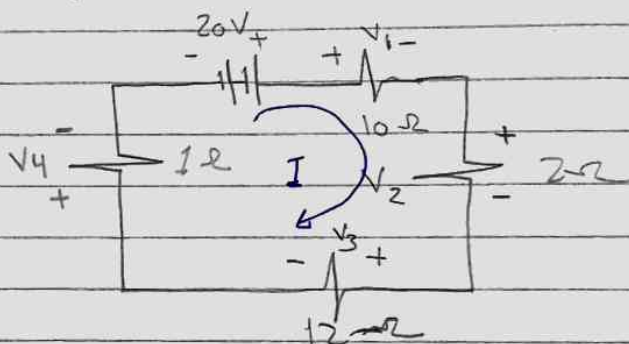 20V
+ -
+ V1 -
10 Ω
- V4 +
1 Ω
I
V2
+ -
2 Ω
V3
- +
12 Ω